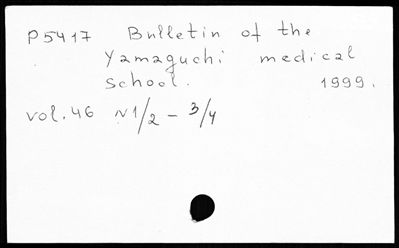 P5417 Bulletin of the
Yamaguchi medical
school. 1999.
vol. 46 N1/2 - 3/4